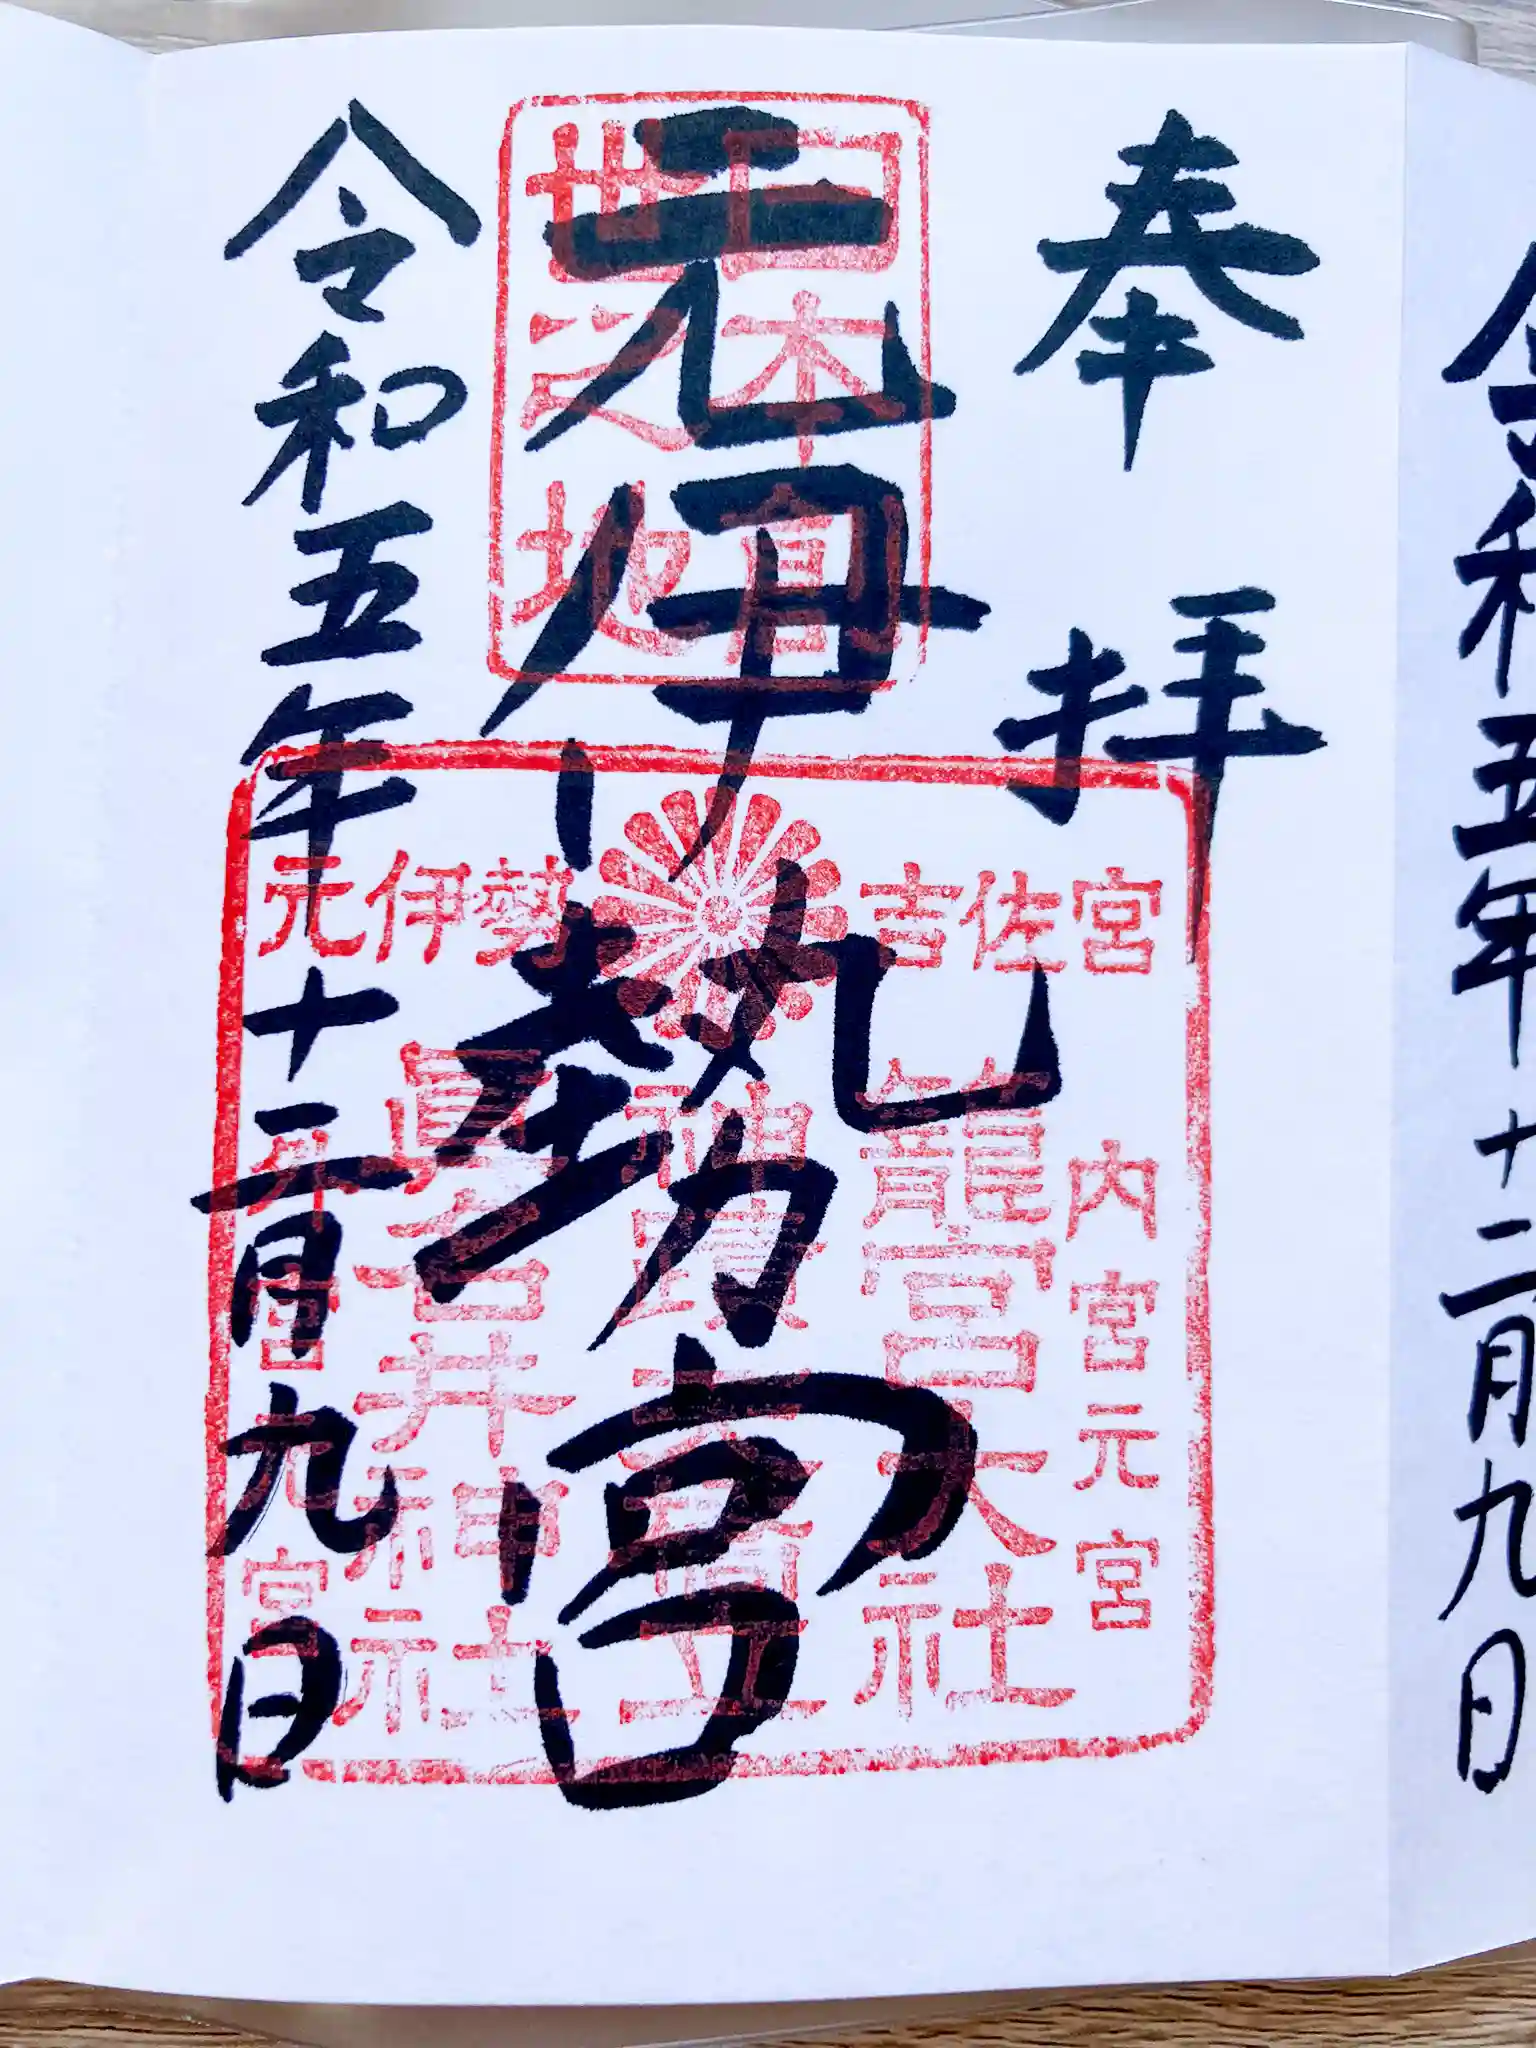 令和五年十二月九日
奉拝
元伊勢宮
令和五年十二月九日
世之地
元伊勢 吉佐宮
内宮元宮
籠宮大社
眞名井神社
外宮元宮